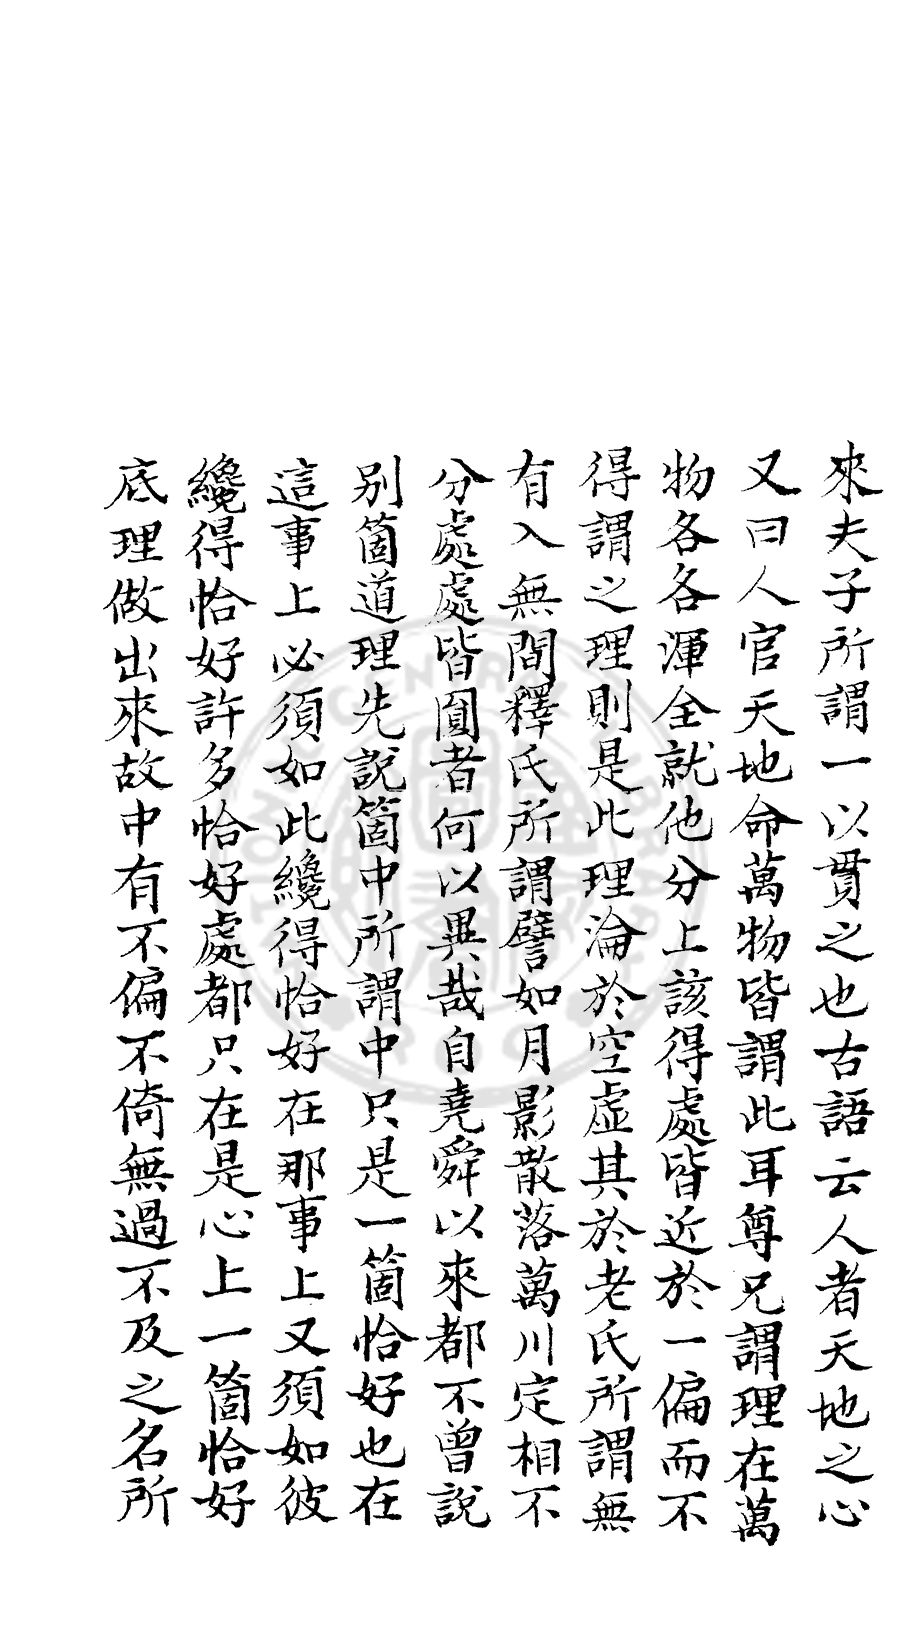 來夫子所謂一以貫之也古語云人者天地之心
又曰人官天地命萬物皆謂此耳尊兄謂理在萬
物各各渾全就他分上該得處皆近於一偏而不
得謂之理則是此理淪於空虛其於老氏所謂無
有入無間釋氏所謂譬如月影散落萬川定相不
分處處皆圓者何以異哉自堯舜以來都不曾說
別箇道理先說箇中所謂中只是一箇恰好也在
這事上必須如此纔得恰好在那事上又須如彼
纔得恰好許多恰好處都只在是心上一箇恰好
底理做出來故中有不偏不倚無過不及之名所
NATIONAL CENTRAL LIBRARY